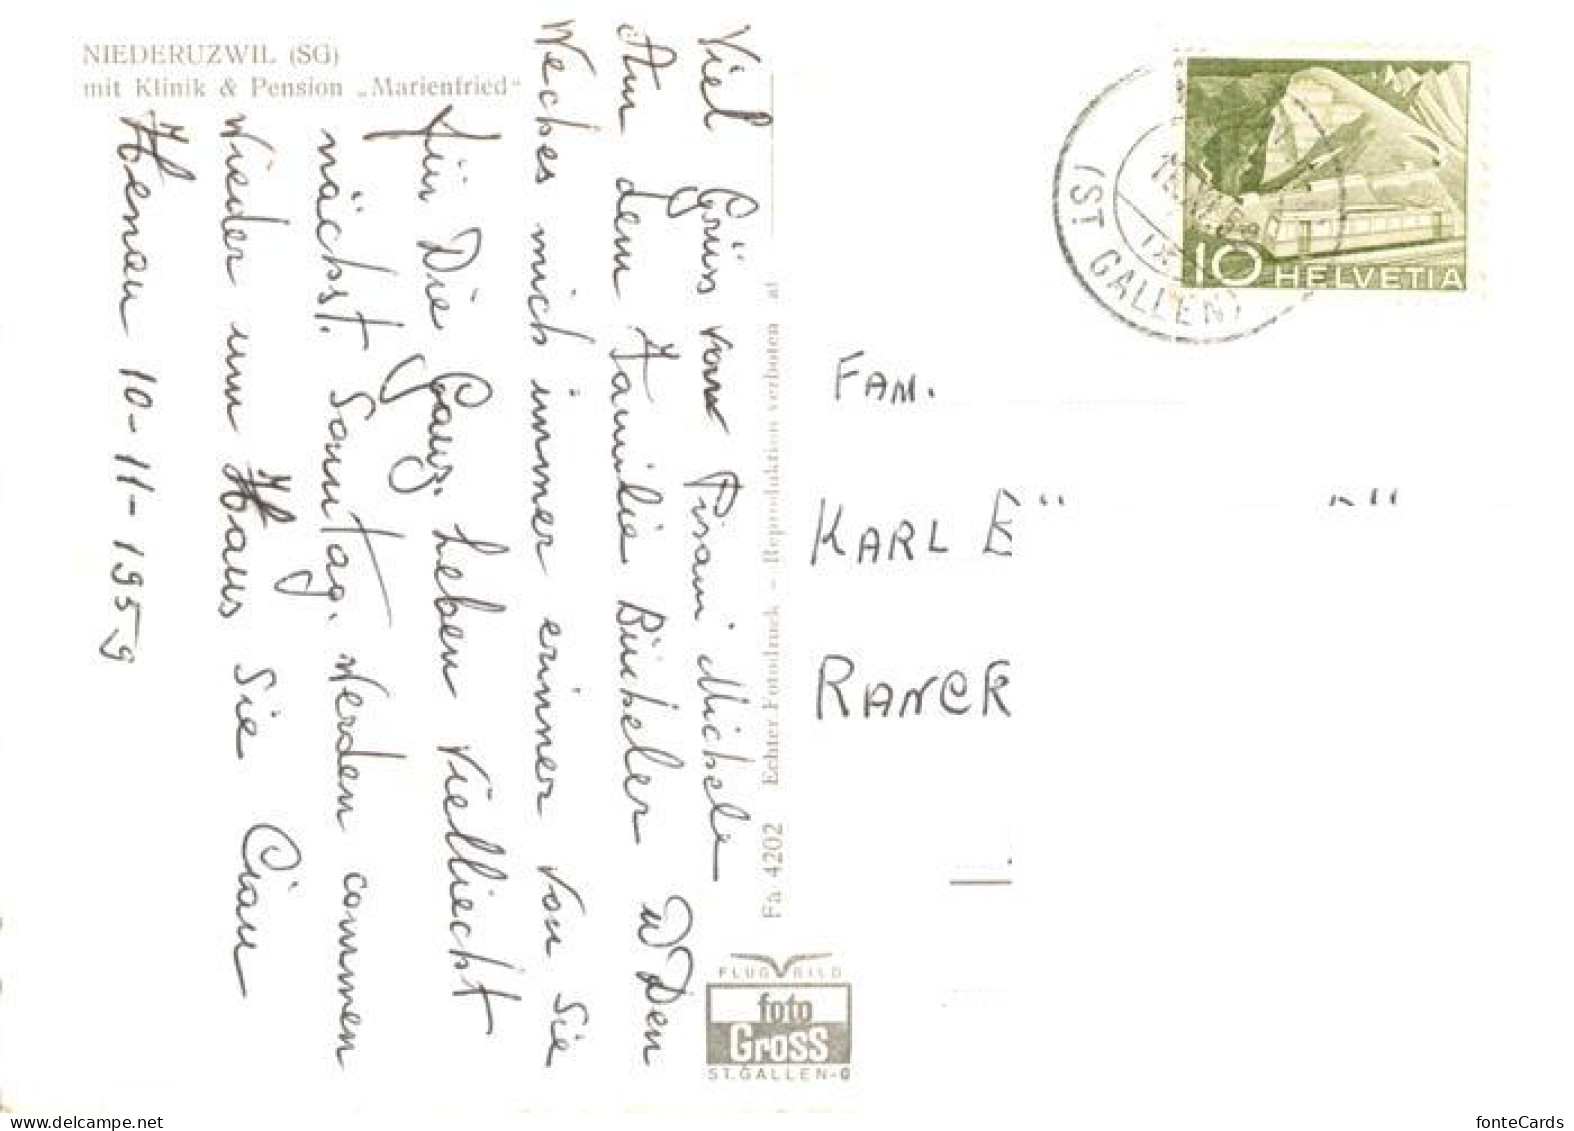 NIEDERUZWIL (SG)
mit Klinik & Pension „Marienfried"
Viel Grüss von Pisani Michele
An dem Familie Bücheler W Den
Weches mich immer erinner von Sie
für Die ganz. Leben Vielliecht
nächst. Sonntag. Werden commen
Wieder um Haus Sie Ciau
Henau 10-11-1959
Fa 4202 Echter Fotodruck – Reproduktion verboten
FLUGBILD
foto
Gross
ST. GALLEN-O
(ST GALLEN)
10 HELVETIA
FAM.
KARL E
RANCK
fonteCards